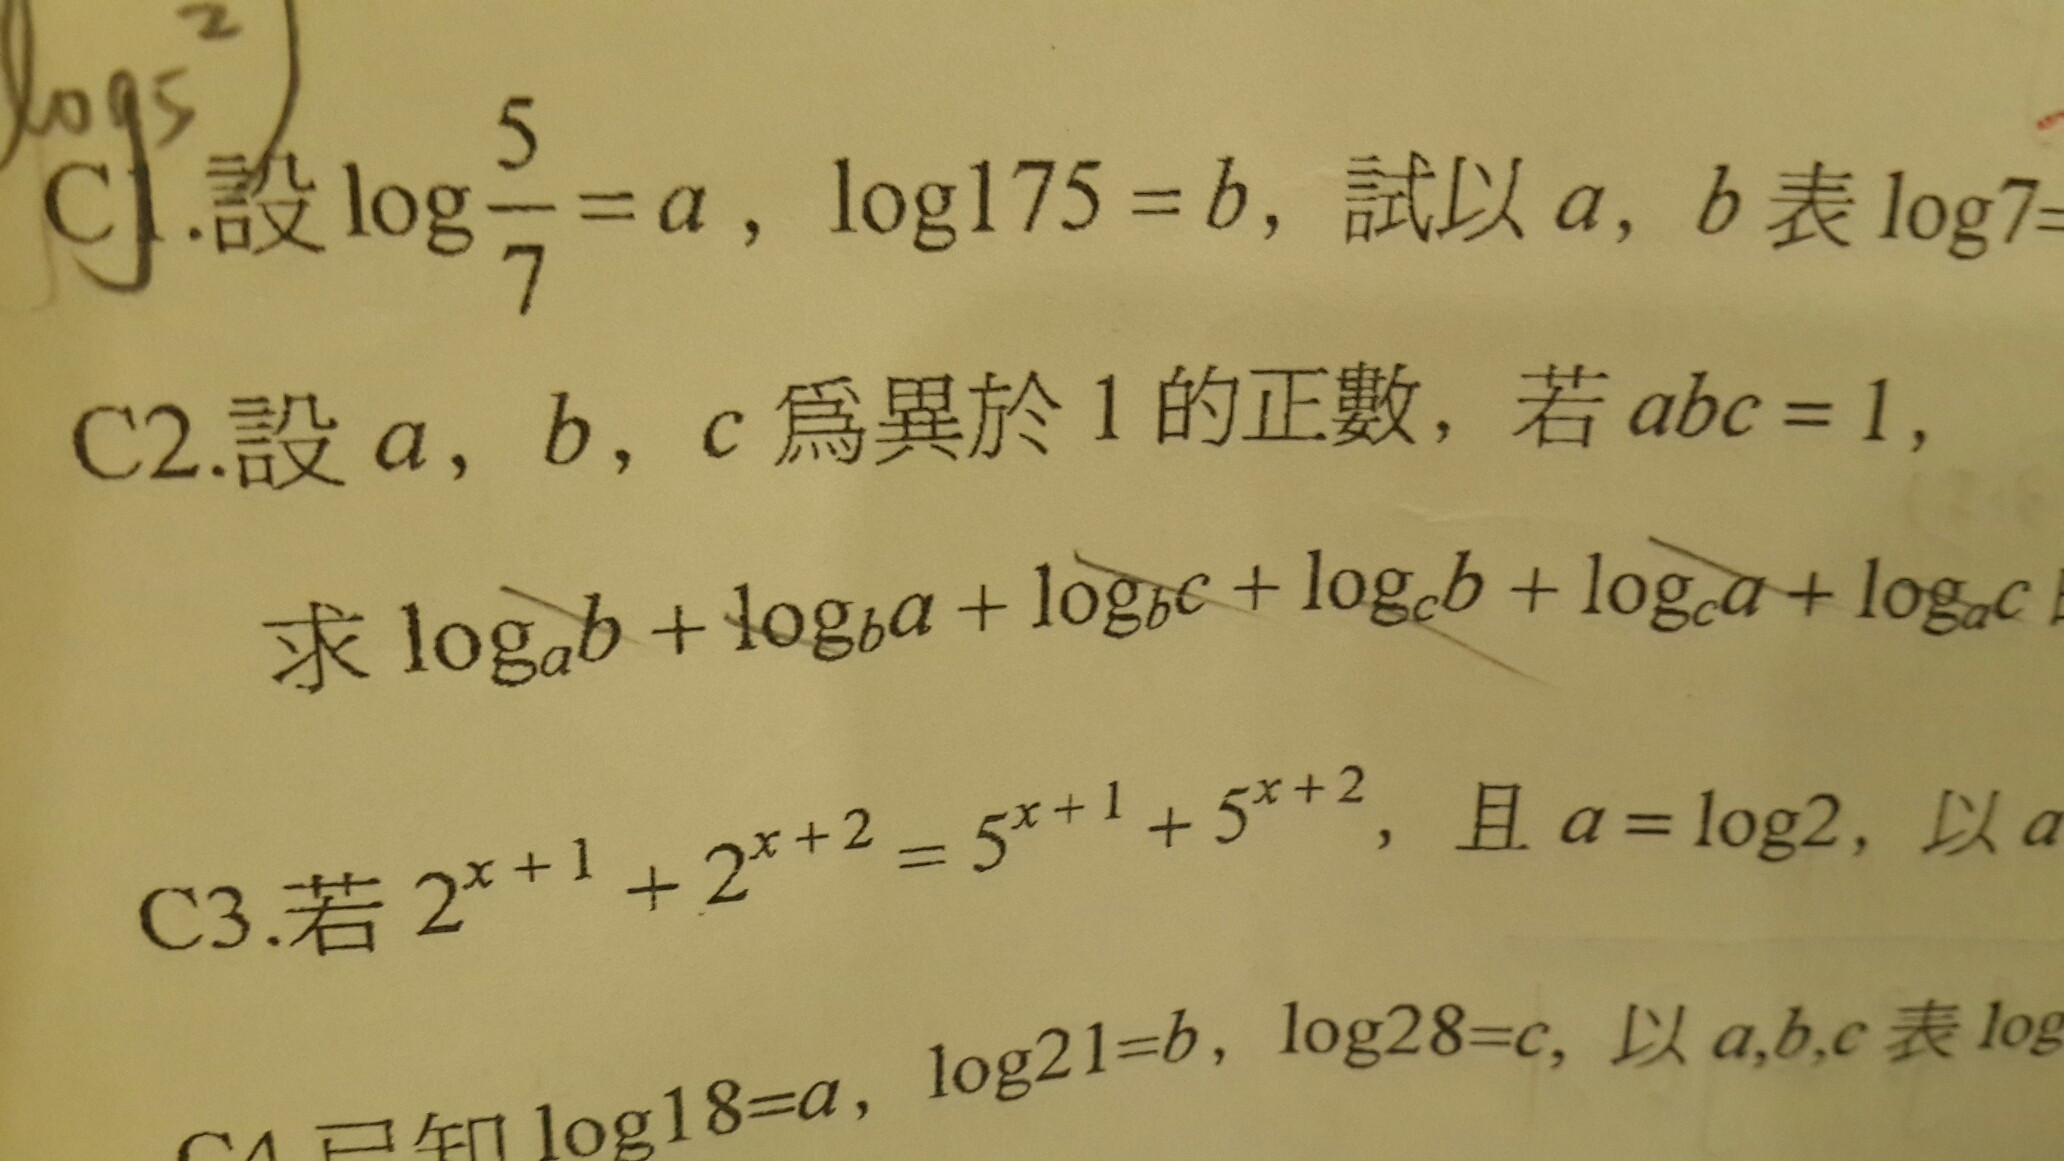 2
log5
C1.設 log 5/7 = a，log175 = b，試以 a，b 表 log7=
C2.設 a，b，c 爲異於 1 的正數，若 abc = 1，
求 logₐb + log_b a + log_b c + log_c b + log_c a + logₐc
C3.若 2^(x+1) + 2^(x+2) = 5^(x+1) + 5^(x+2)，且 a = log2，以 a
C4.已知 log18=a，log21=b，log28=c，以 a,b,c 表 log